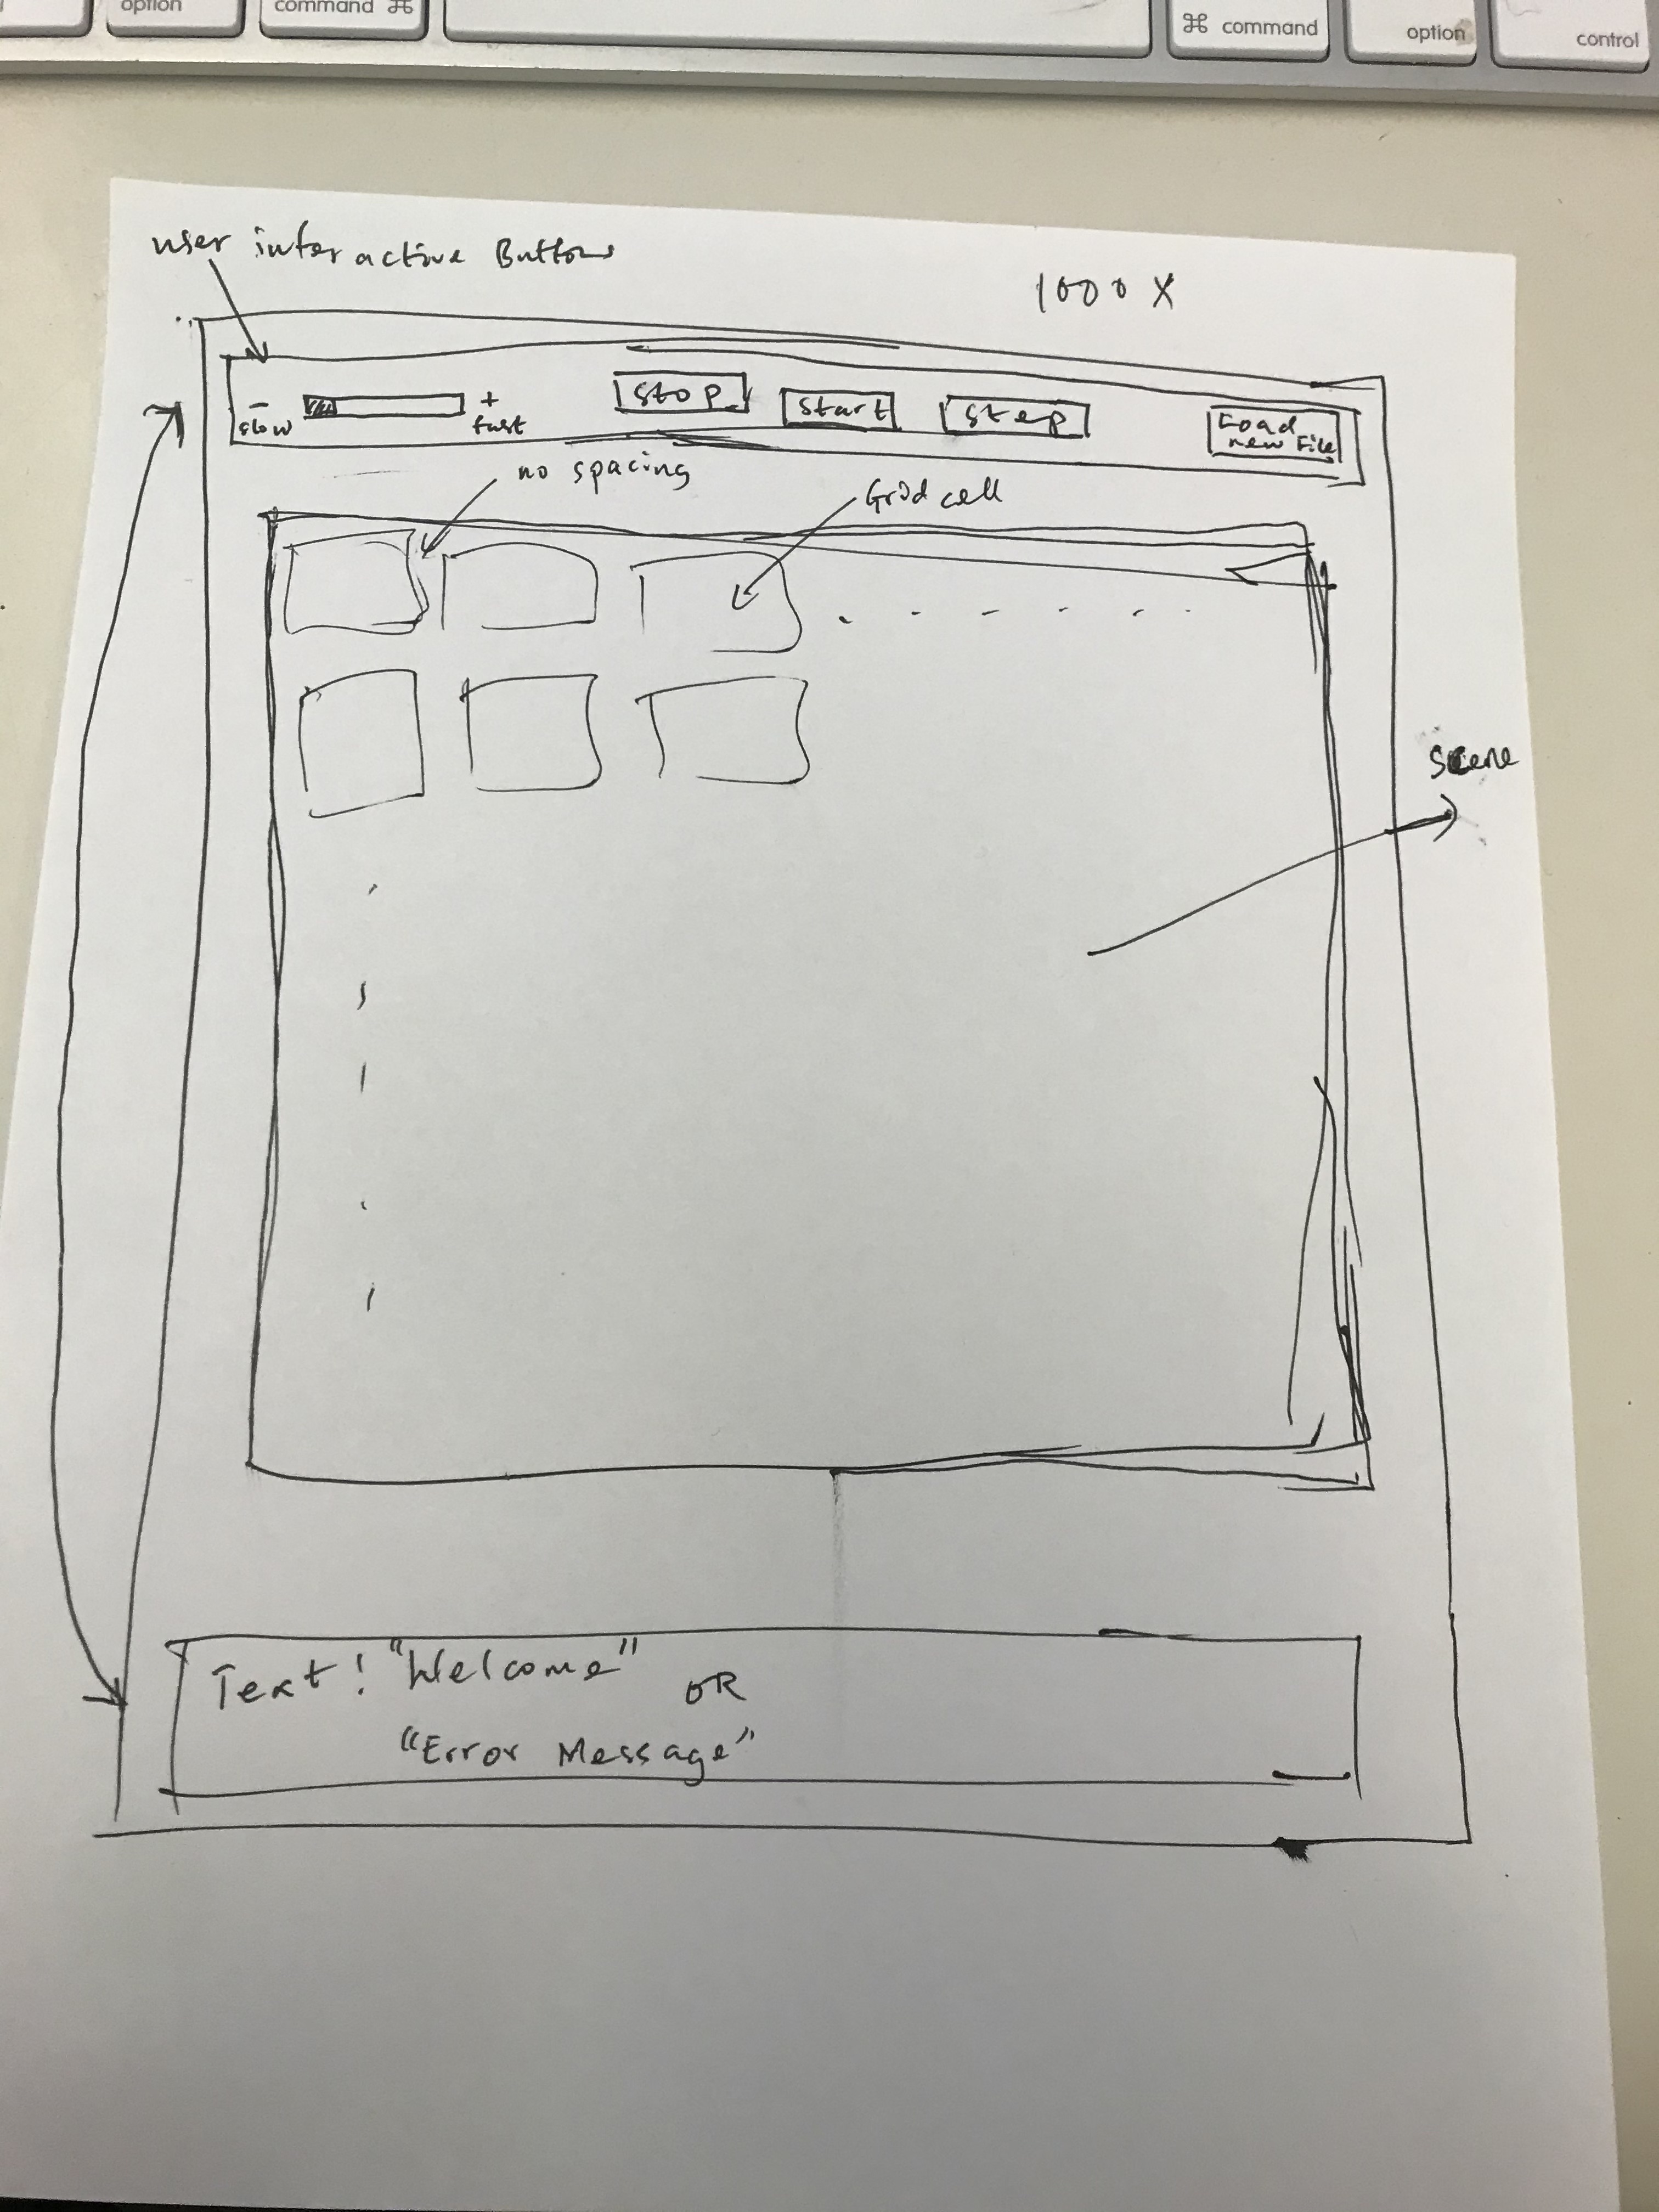 option
command ⌘
⌘ command
option
control
user interactive Buttons
1000 X
- slow
+ fast
stop
start
step
Load
new File
no spacing
Grid cell
scene
Text! "Welcome" OR
"Error Message"